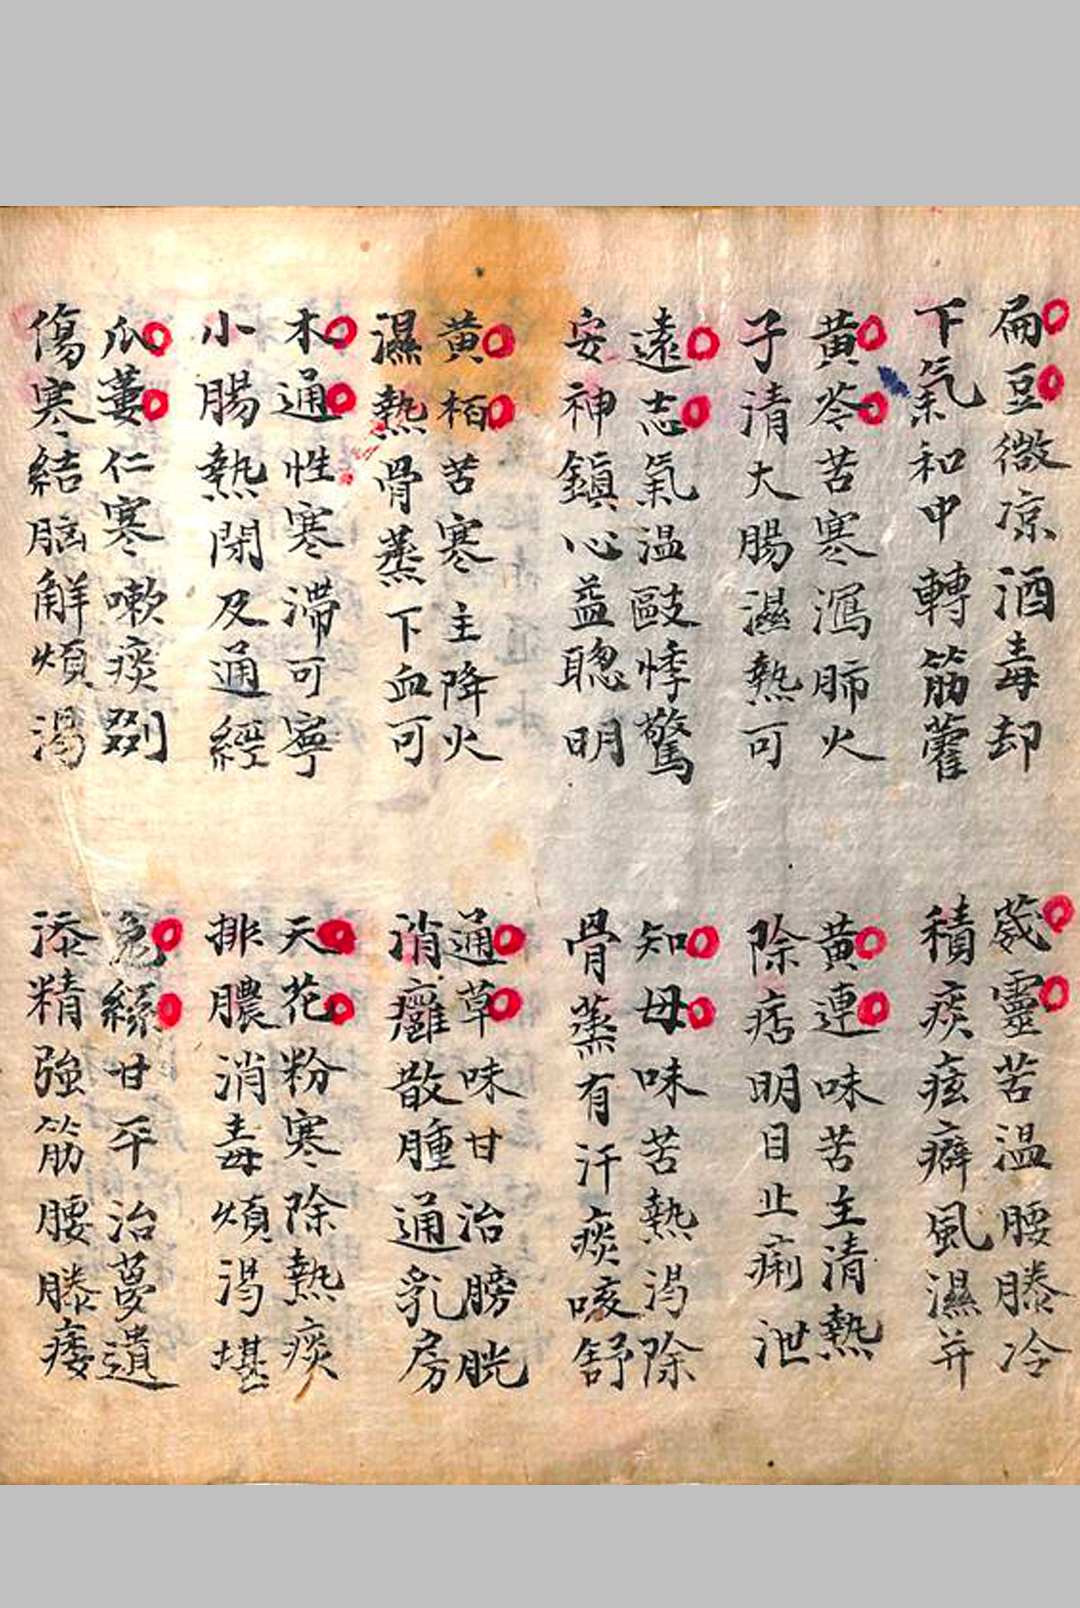 扁豆微凉酒毒却
下氣和中轉筋藿
黃芩苦寒瀉肺火
子清大腸濕熱可
遠志氣温敺悸驚
安神鎮心益聰明
黃栢苦寒主降火
濕熱骨蒸下血可
木通性寒滯可寧
小腸熱閉及通經
瓜蔞仁寒嗽痰剟
傷寒結胸解煩渴
葳靈苦温腰膝冷
積痰痃癖風濕并
黃連味苦主清熱
除痞明目止痢泄
知母味苦熱渴除
骨蒸有汗痰咳舒
通草味甘治膀胱
消癰散腫通乳房
天花粉寒除熱痰
排膿消毒煩渴堪
兔絲甘平治夢遺
添精強筋腰膝痿